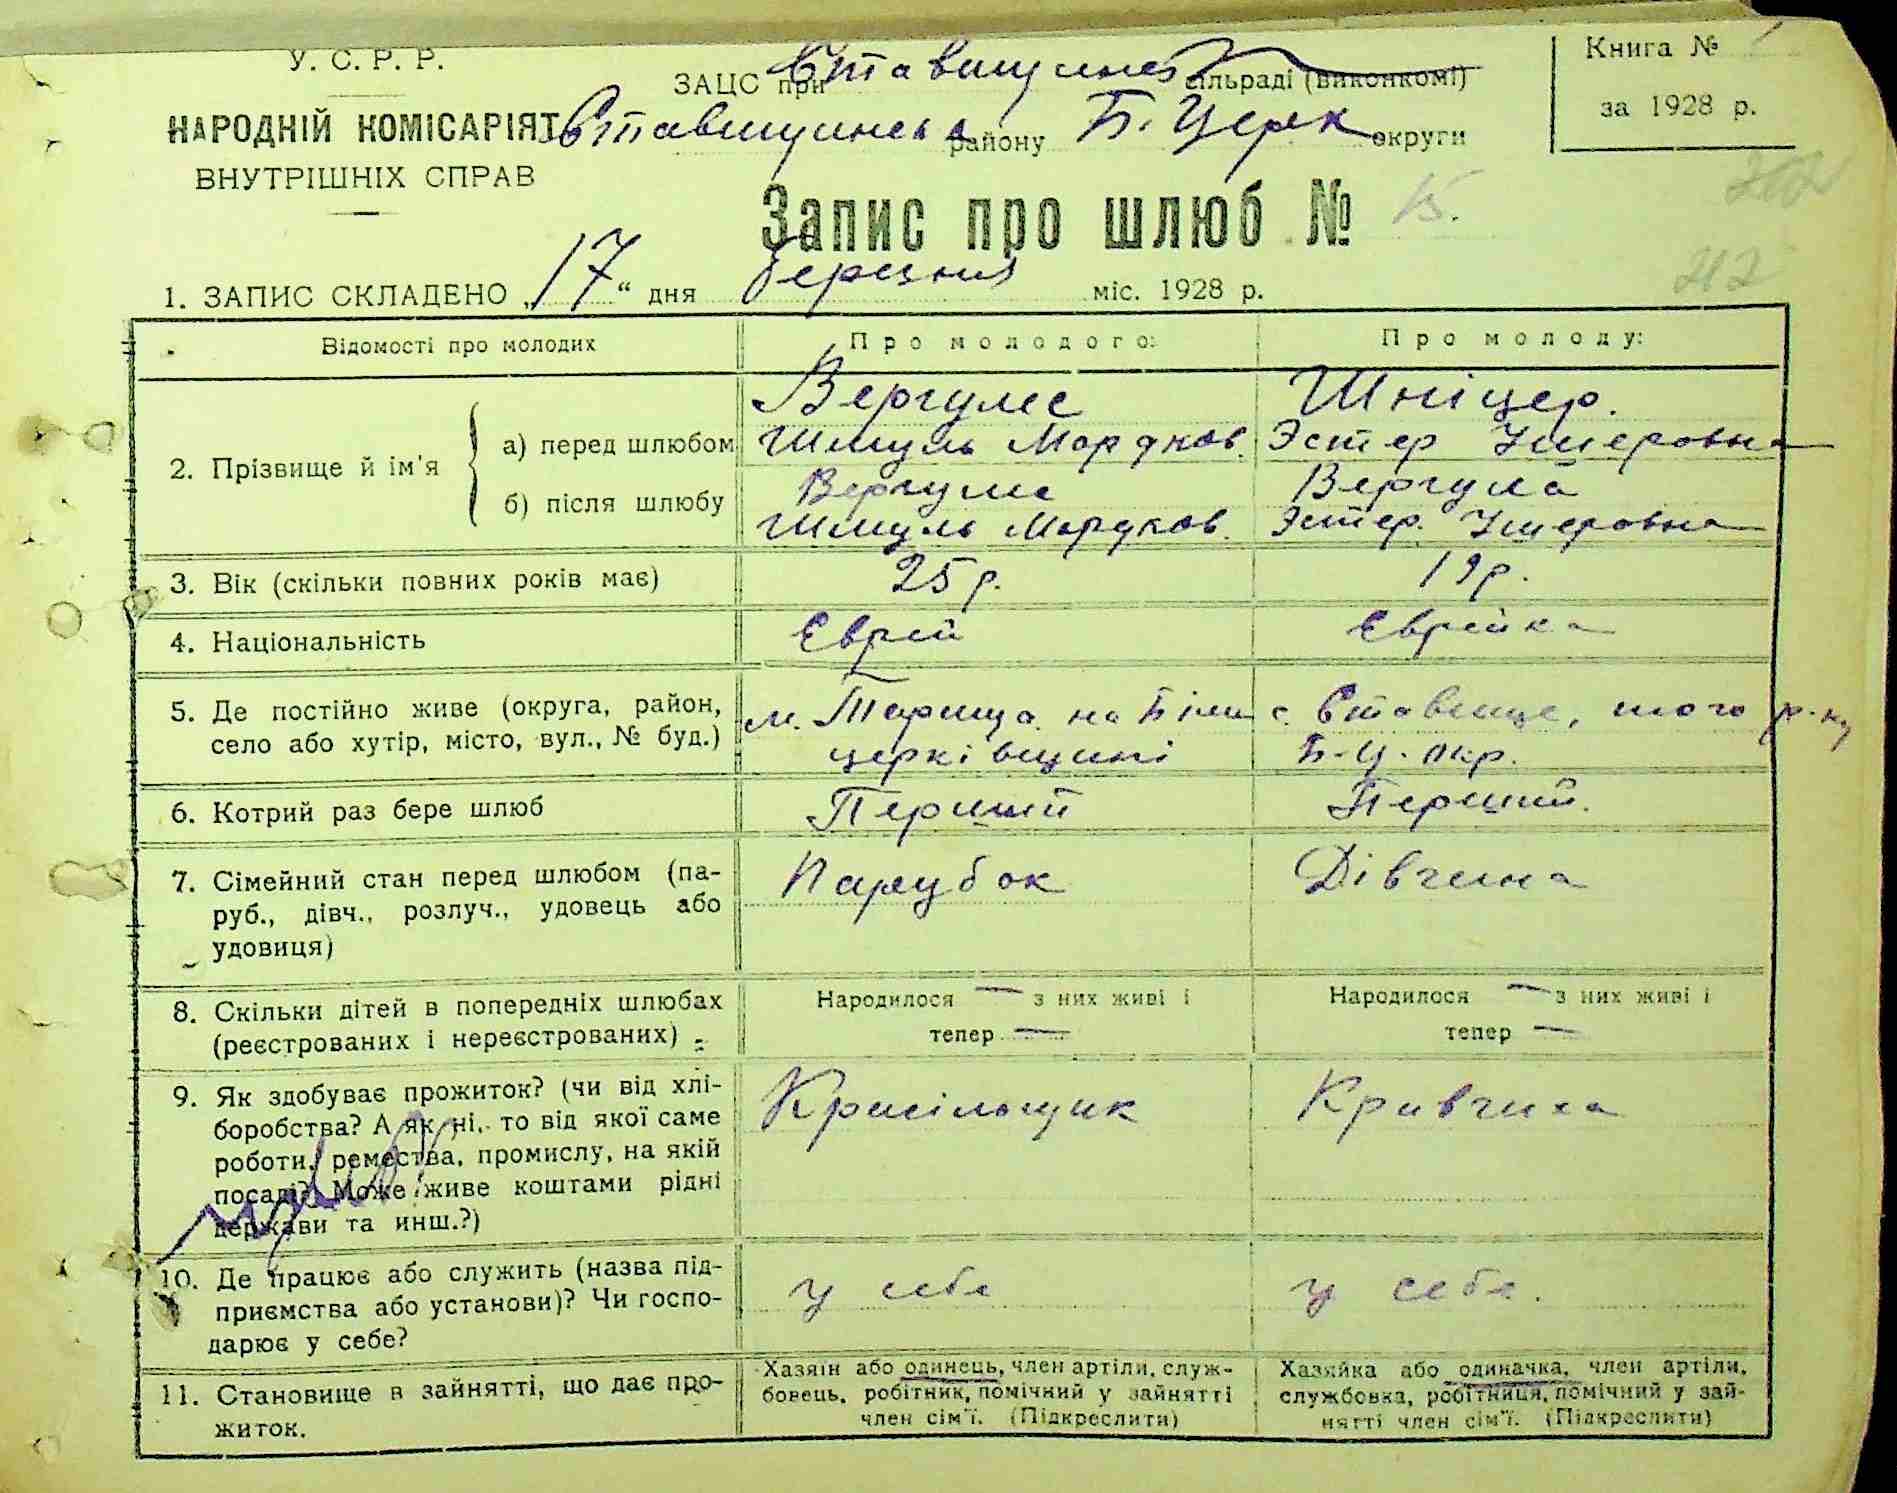 У. С. Р. Р.
НАРОДНІЙ КОМІСАРІЯТ
ВНУТРІШНІХ СПРАВ
ЗАЦС при Ставищенс сільраді (виконкомі)
Ставищинськ району Б. Церк округи
Книга №
за 1928 р.
212
Запис про шлюб № 15.
212
1. ЗАПИС СКЛАДЕНО „17“ дня березня міс. 1928 р.
Відомості про молодих
Про молодого:
Про молоду:
2. Прізвище й ім'я
а) перед шлюбом
Вергулс
Шмуль Мордков.
Шніцер.
Эстер Ушеровна
б) після шлюбу
Вергулс
Шмуль Мордков.
Вергула
Эстер. Ушеровна
3. Вік (скільки повних років має)
25 р.
19 р.
4. Національність
Єврей
Єврейка
5. Де постійно живе (округа, район,
село або хутір, місто, вул., № буд.)
м. Тараща на Біло
церківщині
с. Ставище, того р-ну
Б-Ц. окр.
6. Котрий раз бере шлюб
Перший
Перший.
7. Сімейний стан перед шлюбом (па-
руб., дівч., розлуч., удовець або
удовиця)
Парубок
Дівчина
8. Скільки дітей в попередніх шлюбах
(реєстрованих і нереєстрованих)
Народилося — з них живі і
тепер —
Народилося — з них живі і
тепер —
9. Як здобуває прожиток? (чи від хлі-
боробства? А як ні, то від якої саме
роботи, ремества, промислу, на якій
посаді? Може живе коштами рідні
держави та инш.?)
Красільщик
Кравчиха
10. Де працює або служить (назва під-
приємства або установи)? Чи госпо-
дарює у себе?
у себе
у себе.
11. Становище в зайнятті, що дає про-
житок.
Хазяїн або одинець, член артіли, служ-
бовець, робітник, помічний у зайнятті
член сім'ї. (Підкреслити)
Хазяйка або одиначка, член артіли,
службовка, робітниця, помічний у зай-
нятті член сім'ї. (Підкреслити)